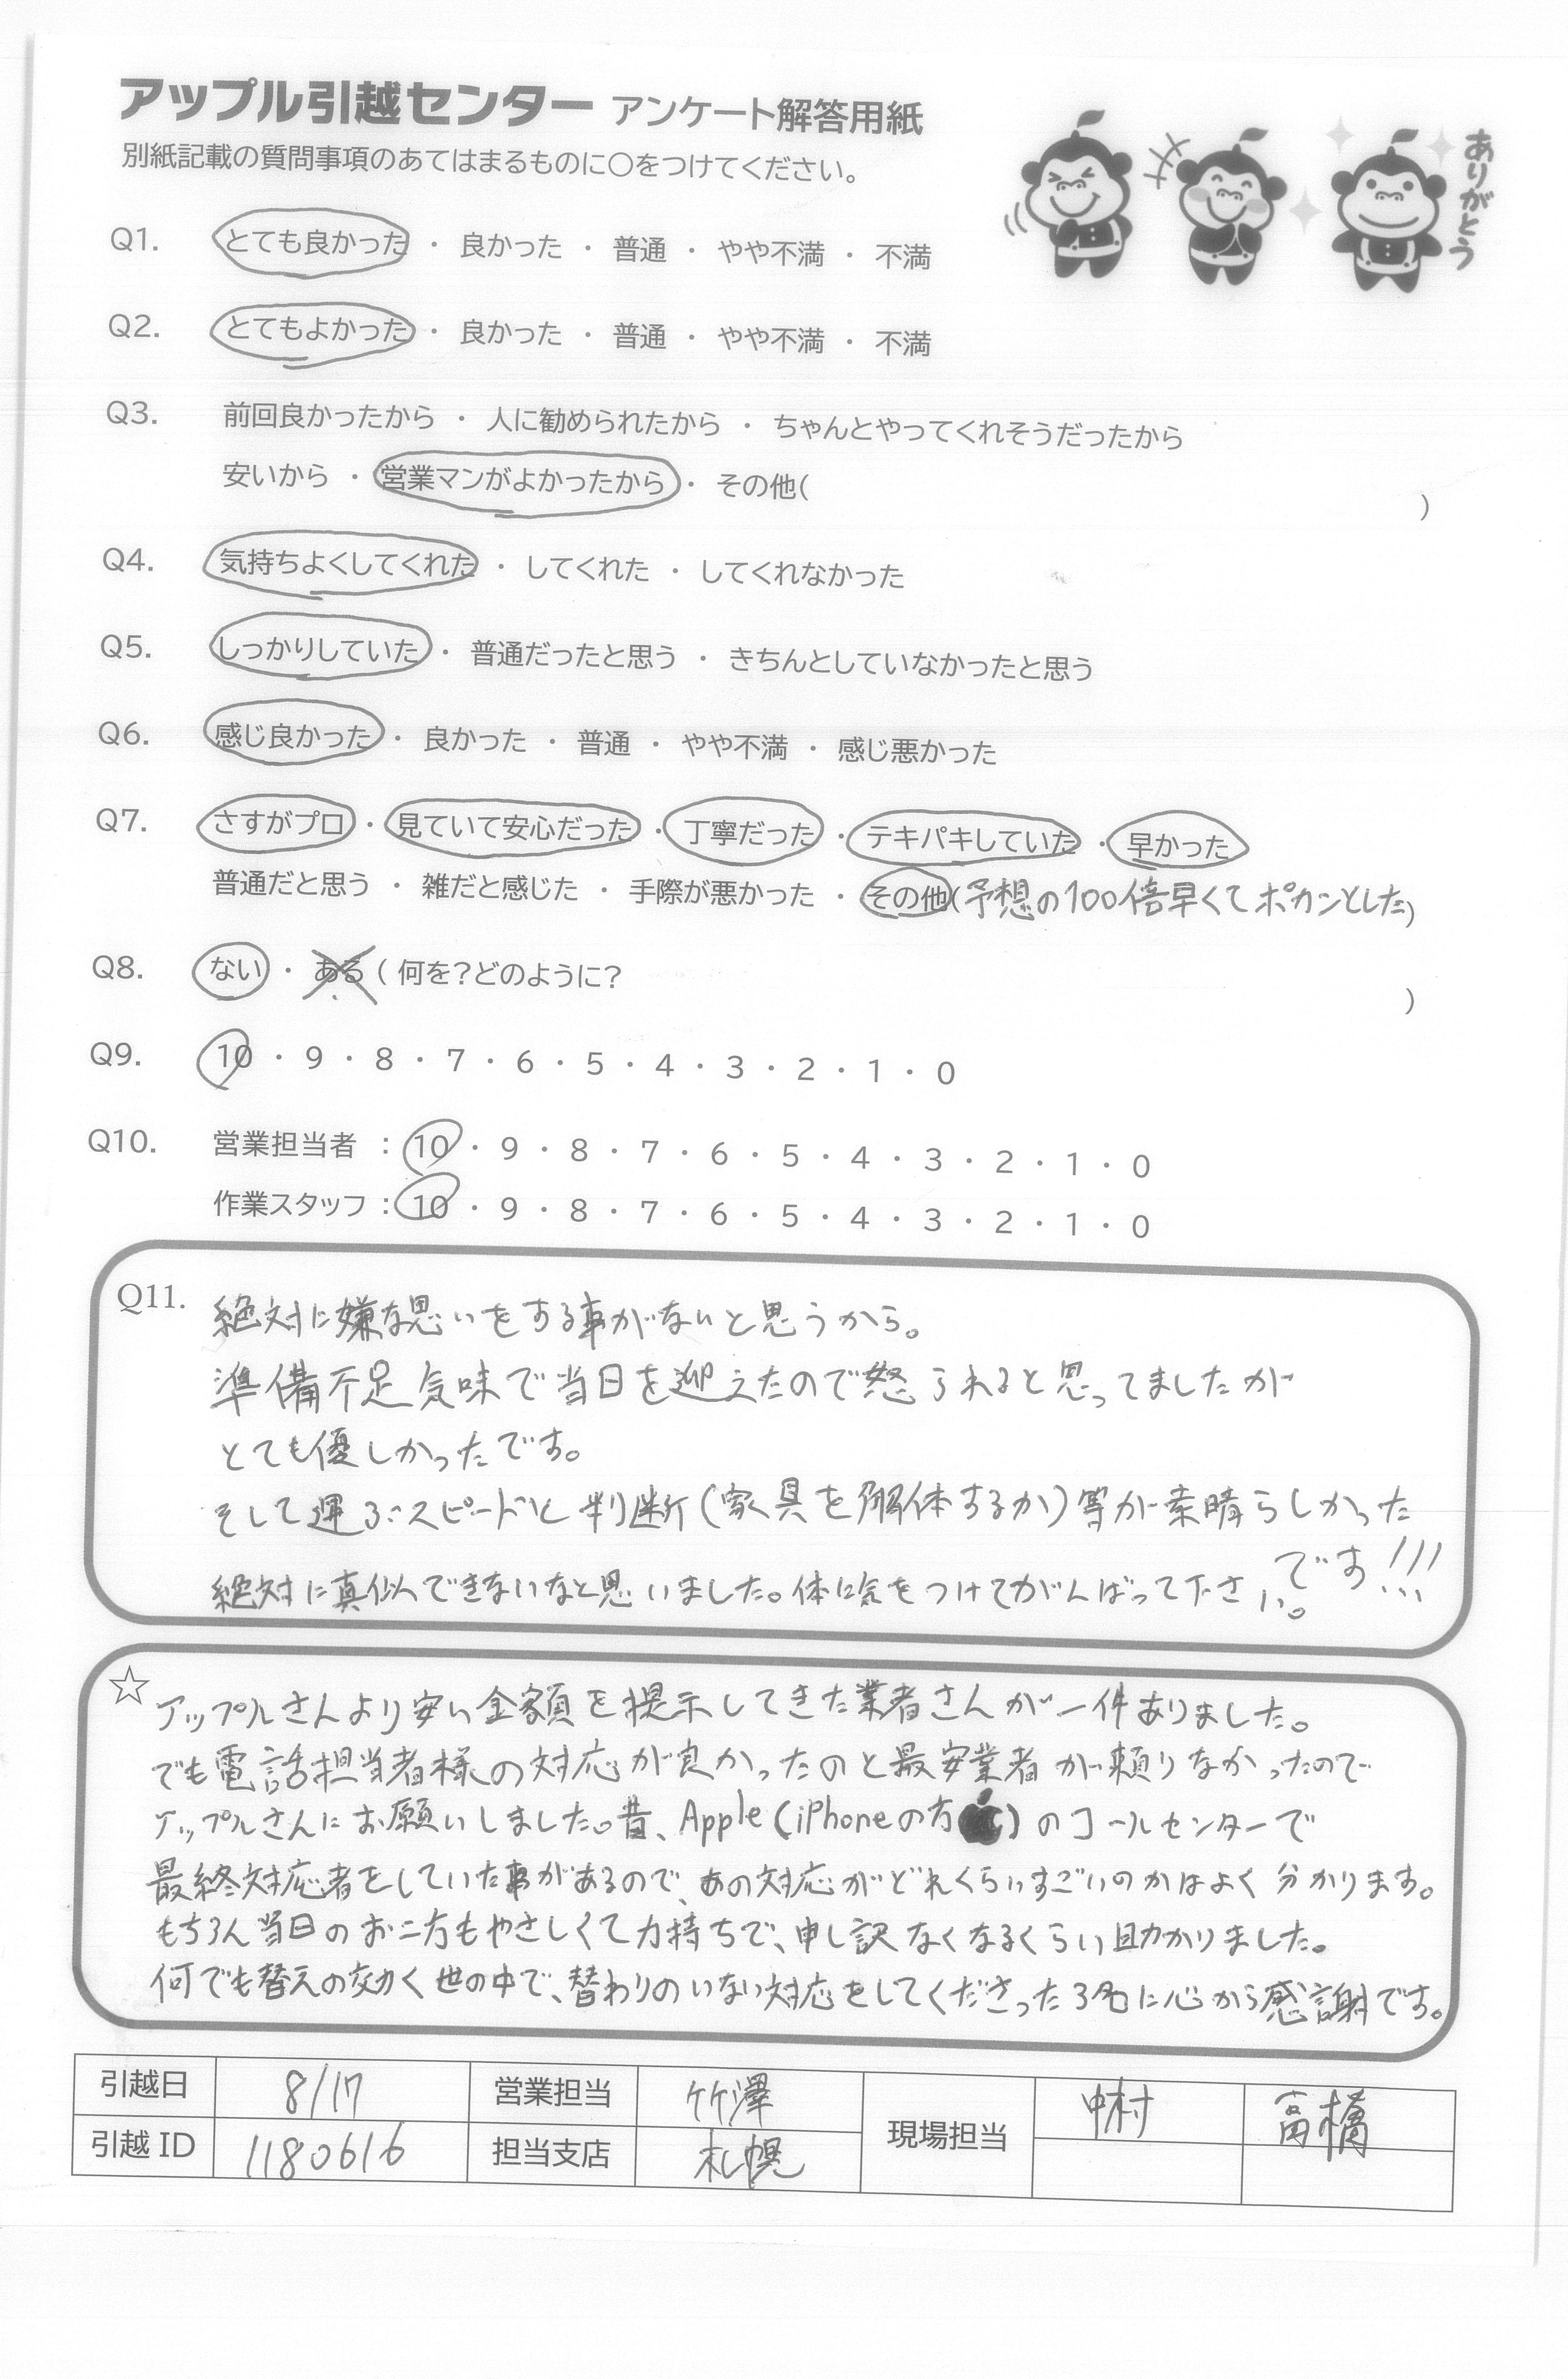 アップル引越センター アンケート解答用紙
別紙記載の質問事項のあてはまるものに○をつけてください。
ありがとう
Q1. とても良かった ・ 良かった ・ 普通 ・ やや不満 ・ 不満
Q2. とてもよかった ・ 良かった ・ 普通 ・ やや不満 ・ 不満
Q3. 前回良かったから ・ 人に勧められたから ・ ちゃんとやってくれそうだったから
安いから ・ 営業マンがよかったから ・ その他( )
Q4. 気持ちよくしてくれた ・ してくれた ・ してくれなかった
Q5. しっかりしていた ・ 普通だったと思う ・ きちんとしていなかったと思う
Q6. 感じ良かった ・ 良かった ・ 普通 ・ やや不満 ・ 感じ悪かった
Q7. さすがプロ ・ 見ていて安心だった ・ 丁寧だった ・ テキパキしていた ・ 早かった
普通だと思う ・ 雑だと感じた ・ 手際が悪かった ・ その他(予想の100倍早くてポカンとした)
Q8. ない ・ ある ( 何を?どのように? )
Q9. 10 ・ 9 ・ 8 ・ 7 ・ 6 ・ 5 ・ 4 ・ 3 ・ 2 ・ 1 ・ 0
Q10. 営業担当者 : 10 ・ 9 ・ 8 ・ 7 ・ 6 ・ 5 ・ 4 ・ 3 ・ 2 ・ 1 ・ 0
作業スタッフ : 10 ・ 9 ・ 8 ・ 7 ・ 6 ・ 5 ・ 4 ・ 3 ・ 2 ・ 1 ・ 0
Q11. 絶対に嫌な思いをする事がないと思うから。
準備不足気味で当日を迎えたので怒られると思ってましたが
とても優しかったです。
そして運ぶスピードと判断(家具を解体するか)等が素晴らしかった
です!!!
絶対に真似できないなと思いました。体に気をつけてがんばって下さい。
☆ アップルさんより安い金額を提示してきた業者さんが一件ありました。
でも電話担当者様の対応が良かったのと最安業者が頼りなかったので
アップルさんにお願いしました。昔、Apple(iPhoneの方)のコールセンターで
最終対応者をしていた事があるので、あの対応がどれくらいすごいのかはよく分かります。
もちろん当日のお二方もやさしくて力持ちで、申し訳なくなるくらい助かりました。
何でも替えの効く世の中で、替わりのいない対応をしてくださった3名に心から感謝です。
引越日 8/17 営業担当 竹澤 現場担当 中村 高橋
引越 ID 1180616 担当支店 札幌